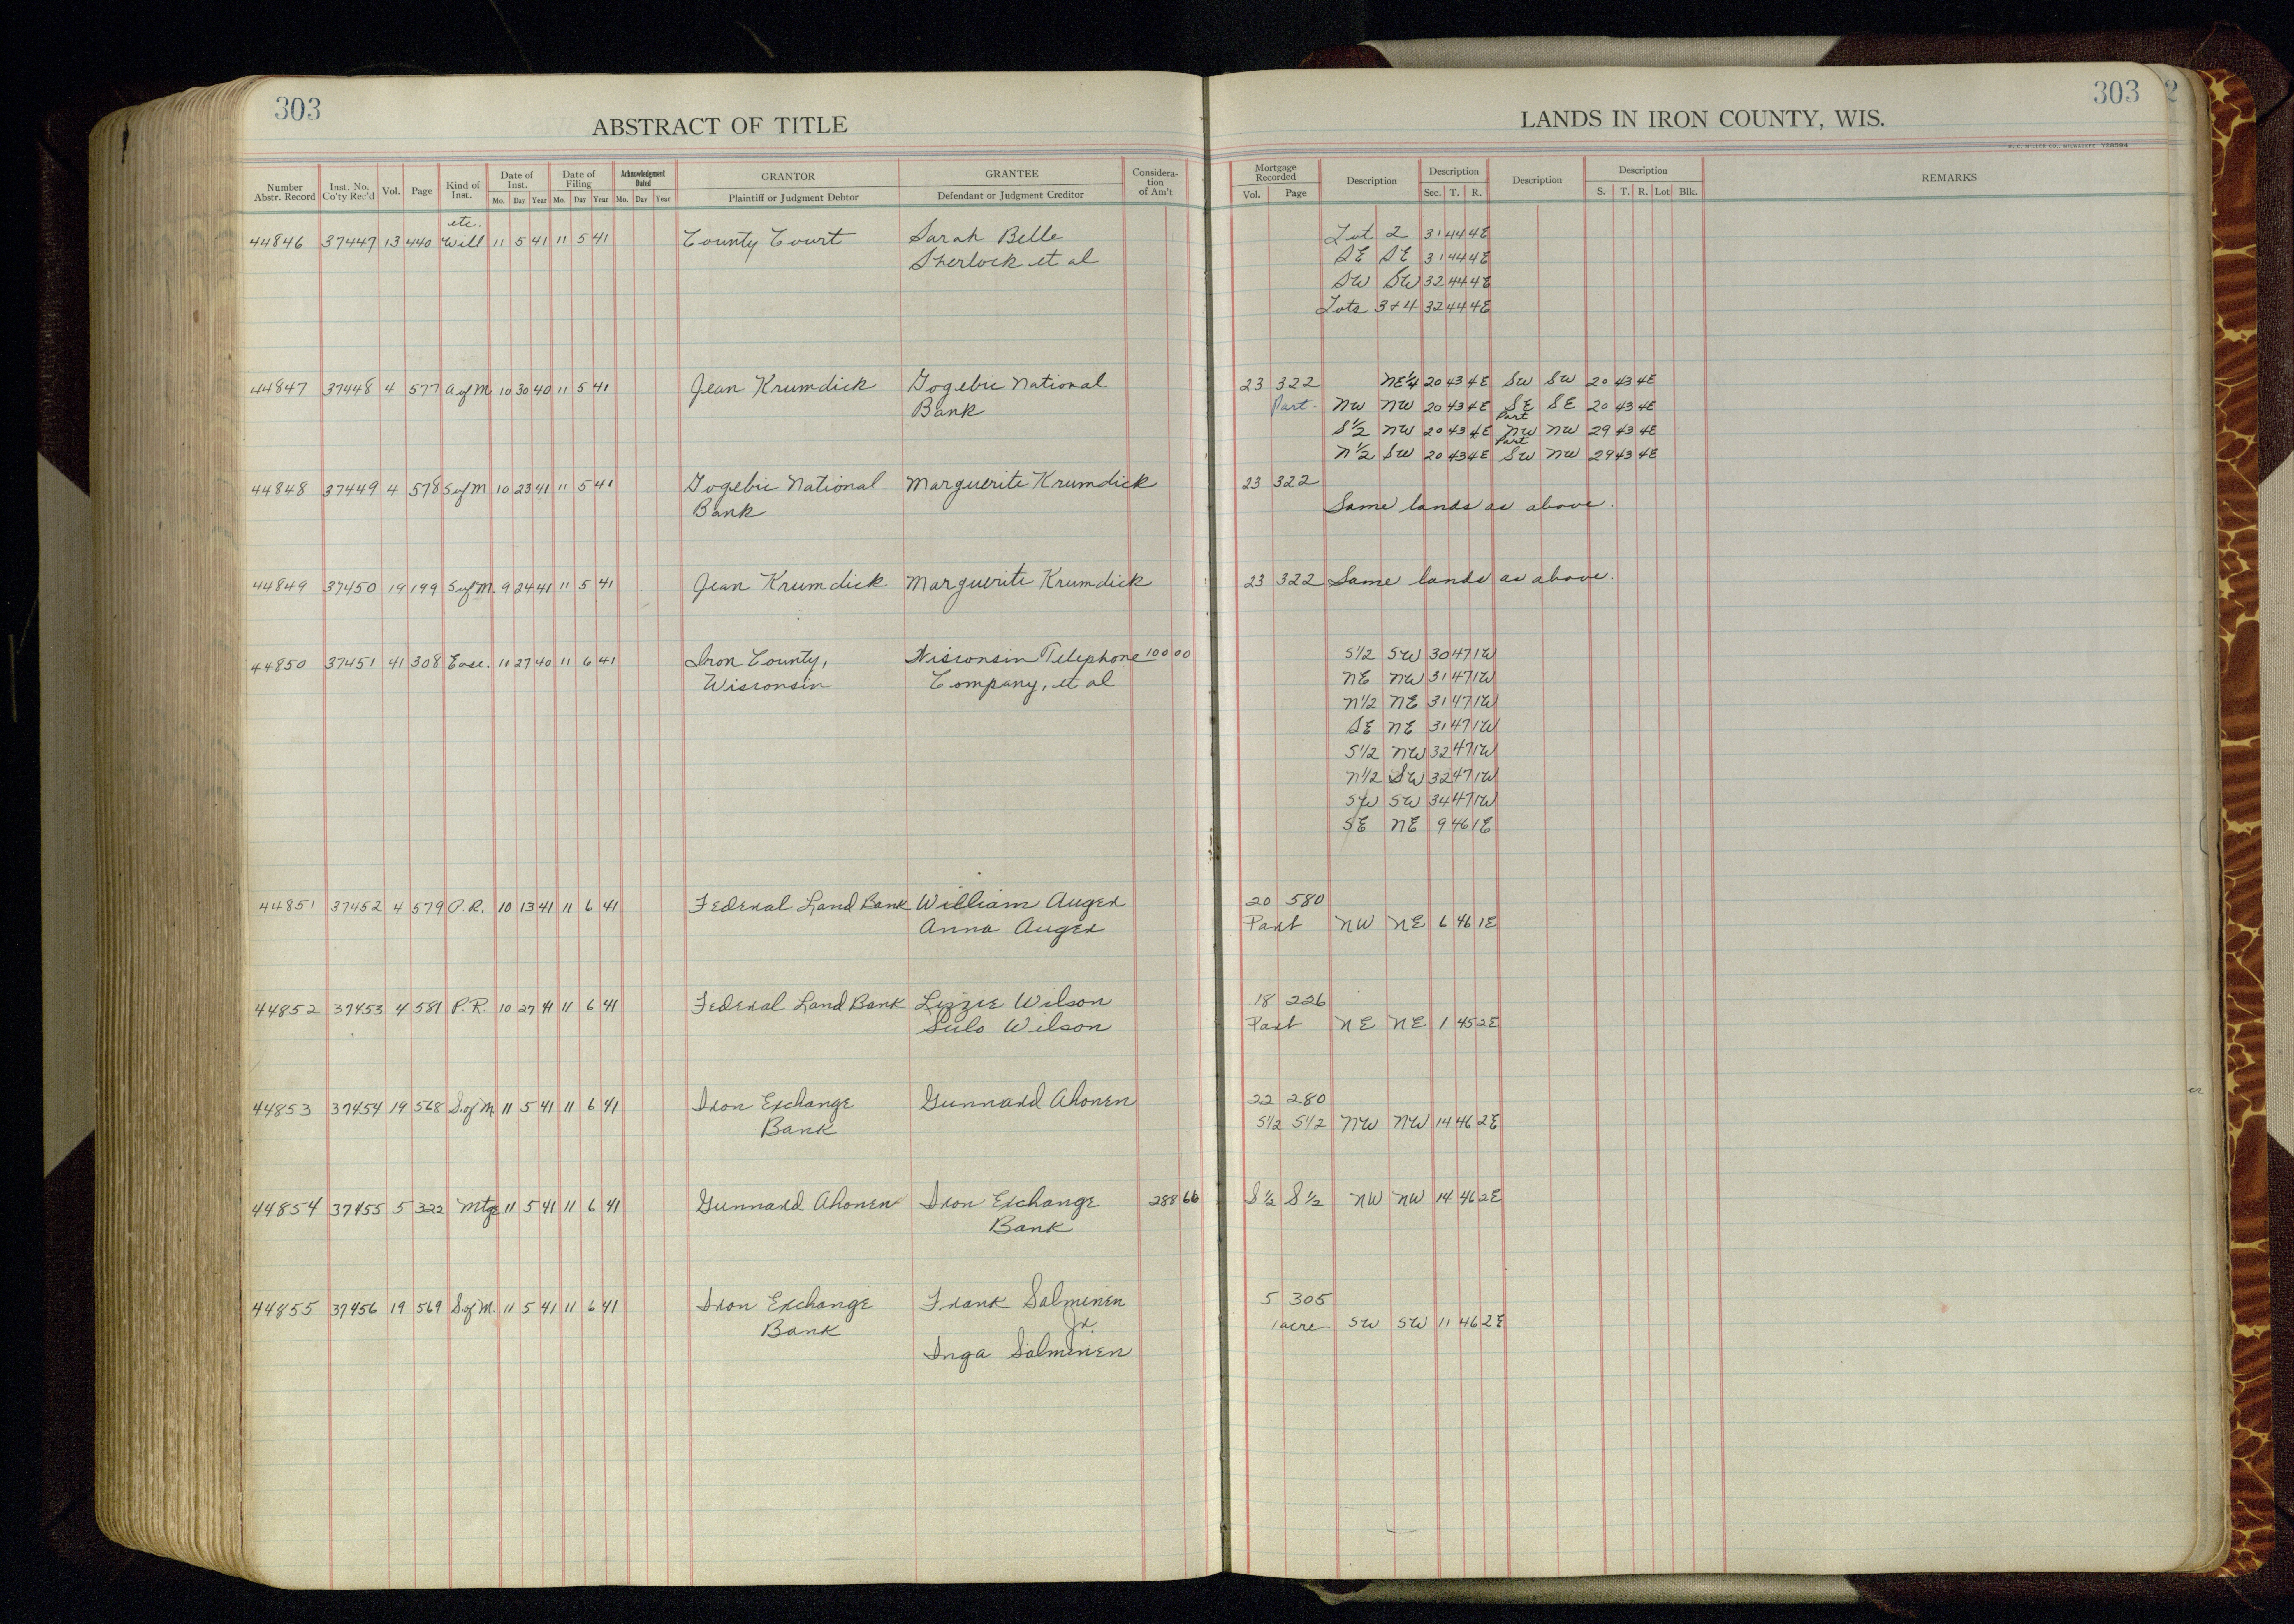 303
ABSTRACT OF TITLE
LANDS IN IRON COUNTY, WIS.
303
2
H. C. MILLER CO., MILWAUKEE Y28094
Number Abstr. Record | Inst. No. Co'ty Rec'd | Vol. | Page | Kind of Inst. | Date of Inst. Mo. Day Year | Date of Filing Mo. Day Year | Acknowledgment Dated Mo. Day Year | GRANTOR Plaintiff or Judgment Debtor | GRANTEE Defendant or Judgment Creditor | Consideration of Am't | Mortgage Recorded Vol. Page | Description | Description Sec. T. R. | Description | Description S. T. R. Lot Blk. | REMARKS
etc.
44846 37447 13 440 Will 11 5 41 11 5 41 County Court Sarah Belle Lot 2 31 44 4E
Sherlock et al SE SE 31 44 4E
SW SW 32 44 4E
Lots 3 & 4 32 44 4E
44847 37448 4 577 A of M 10 30 40 11 5 41 Jean Krumdick Gogebic National 23 322 NE 1/4 20 43 4E SW SW 20 43 4E
Bank Part- NW NW 20 43 4E SE SE 20 43 4E
S 1/2 NW 20 43 4E Part NW NW 29 43 4E
N 1/2 SW 20 43 4E Part SW NW 29 43 4E
44848 37449 4 578 S of M 10 23 41 11 5 41 Gogebic National Marguerite Krumdick 23 322
Bank Same lands as above.
44849 37450 19 199 S of M. 9 24 41 11 5 41 Jean Krumdick Marguerite Krumdick 23 322 Same lands as above.
44850 37451 41 308 Ease. 11 27 40 11 6 41 Iron County, Wisconsin Telephone 100 00 S 1/2 SW 30 47 1W
Wisconsin Company, et al NE NW 31 47 1W
N 1/2 NE 31 47 1W
SE NE 31 47 1W
S 1/2 NW 32 47 1W
N 1/2 SW 32 47 1W
SW SW 34 47 1W
SE NE 9 46 1E
44851 37452 4 579 P.R. 10 13 41 11 6 41 Federal Land Bank William Auger 20 580
Anna Auger Part NW NE 6 46 1E
44852 37453 4 581 P.R. 10 27 41 11 6 41 Federal Land Bank Lizzie Wilson 18 226
Sulo Wilson Part NE NE 1 45 2E
44853 37454 19 568 S. of M. 11 5 41 11 6 41 Iron Exchange Gunnard Ahonen 22 280
Bank S 1/2 S 1/2 NW NW 14 46 2E
44854 37455 5 322 Mtge 11 5 41 11 6 41 Gunnard Ahonen Iron Exchange 288 66 S 1/2 S 1/2 NW NW 14 46 2E
Bank
44855 37456 19 569 S. of M. 11 5 41 11 6 41 Iron Exchange Frank Salminen 5 305
Bank Jr. 1 acre SW SW 11 46 2E
Inga Salminen